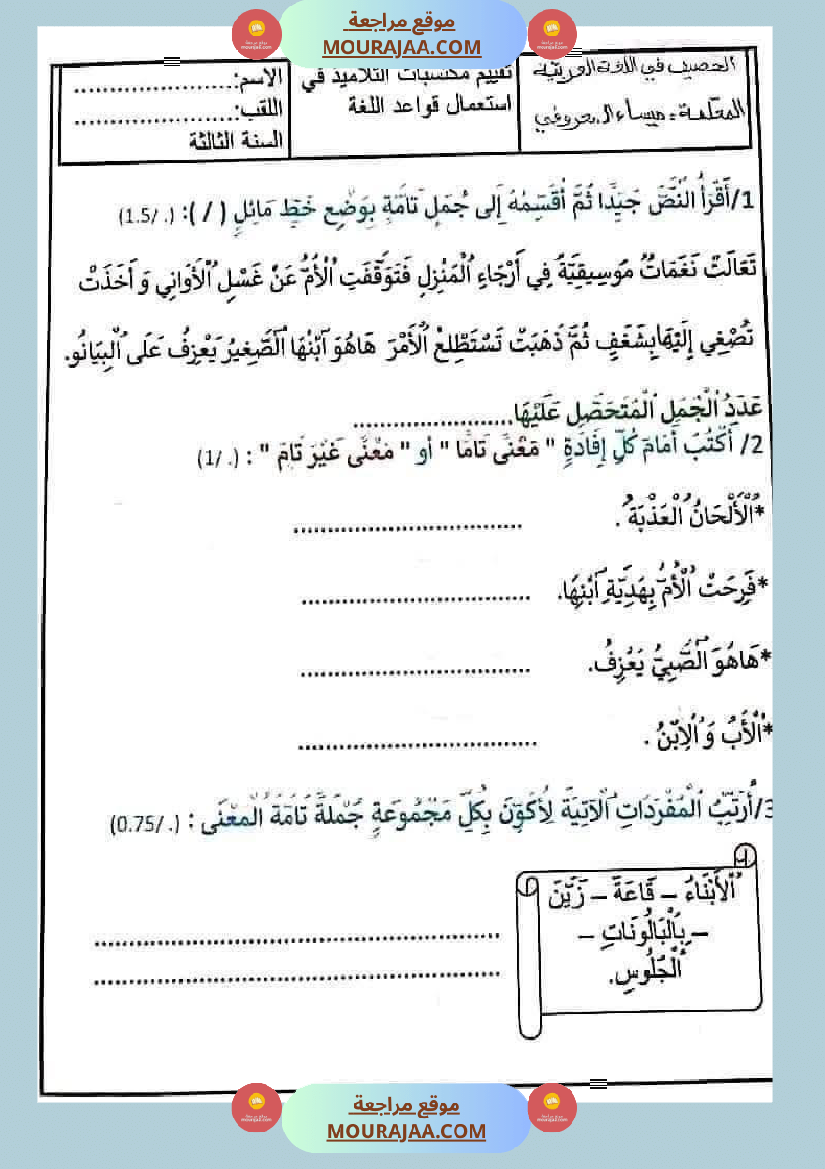 موقع مراجعة
MOURAJAA.COM
الحصيف في اللغة العربية
المعلمة: ميساء المعروفي
تقييم مكتسبات التلاميذ في
استعمال قواعد اللغة
الاسم:........................
اللقب:........................
السنة الثالثة
1/أَقْرَأُ النَّصَّ جَيِّدًا ثُمَّ أُقَسِّمُهُ إِلى جُمَلٍ تَامَّةٍ بِوَضْعِ خَطٍّ مَائِلٍ ( / ): (. /1.5)
تَعَالَتْ نَغَمَاتٌ مُوسِيقِيَّةٌ فِي أَرْجَاءِ ٱلْمَنْزِلِ فَتَوَقَّفَتِ ٱلْأُمُّ عَنْ غَسْلِ ٱلْأَوَانِي وَ أَخَذَتْ
تُصْغِي إِلَيْهَا بِشَغَفٍ ثُمَّ ذَهَبَتْ تَسْتَطْلِعُ ٱلْأَمْرَ هَاهُوَ ٱبْنُهَا ٱلصَّغِيرُ يَعْزِفُ عَلَى ٱلْبِيَانُو.
عَدَدُ ٱلْجُمَلِ ٱلْمُتَحَصَّلِ عَلَيْهَا........................
2/ أَكْتُبُ أَمَامَ كُلِّ إِفَادَةٍ " مَعْنًى تَامًا " أو " مَعْنًى غَيْرَ تَامٍ " : (. /1)
*ٱلْأَلْحَانُ ٱلْعَذْبَةُ . ..................................
*فَرِحَتْ ٱلْأُمُّ بِهَدِيَّةِ ٱبْنِهَا. ..................................
*هَاهُوَ ٱلصَّبِيُّ يَعْزِفُ. ..................................
*ٱلْأَبُ وَ ٱلِابْنُ . ..................................
3/أُرَتِّبُ ٱلْمُفْرَدَاتِ ٱلْآتِيَةَ لِأُكَوِّنَ بِكُلِّ مَجْمُوعَةٍ جُمْلَةً تَامَّةَ ٱلْمَعْنَى : (. /0.75)
1
ٱلْأَبْنَاءُ – قَاعَةَ – زَيَّنَ
– بِٱلْبَالُونَاتِ –
ٱلْجُلُوسِ.
............................................................
............................................................
موقع مراجعة
MOURAJAA.COM